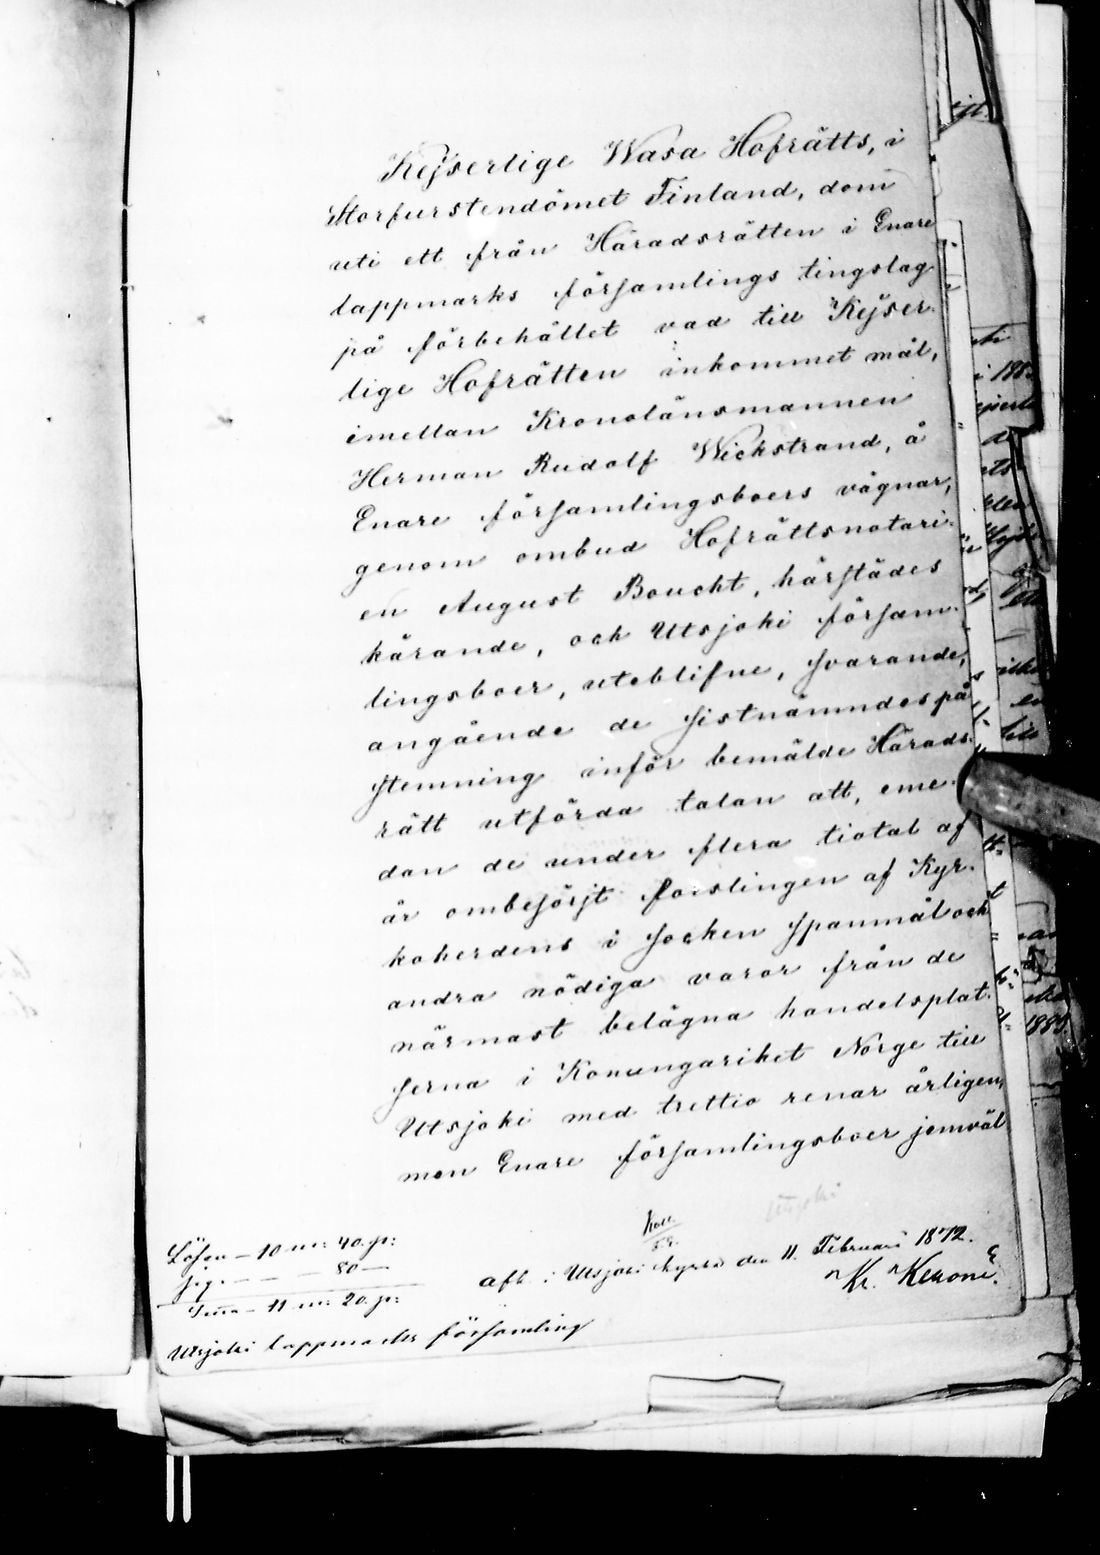 Kejserlige Wasa Hofrätts, i
Storfurstendömet Finland, dom
uti ett från Häradsrätten i Enare
lappmarks församlings tingslag
på förbehållet vad till Kejser-
lige Hofrätten inkommet mål,
imellan Kronolänsmannen
Herman Rudolf Wickstrand, å
Enare församlingsboers vägnar,
genom ombud Hofrättsnotari-
en August Boucht, härstädes
kärande, och Utsjoki försam-
lingsboer, uteblifne, svarande,
angående de sistnämndes på
stemning inför bemälde Härads-
rätt utförda talan att, eme-
dan de under flera tiotal af
år ombesörjt forslingen af Kyr-
koherdens i socken spanmål och
andra nödiga varor från de
närmast belägna handelsplat-
serna i Konungariket Norge till
Utsjoki med trettio renar årligen,
men Enare församlingsboer jemväl
Utsjoki
Lösen – 10 m: 40 p:
80 –
Sma – 11 m: 20 p:
Utsjoki lappmarks församling
i Utsjoki kyrka den 11 Februari 1872.